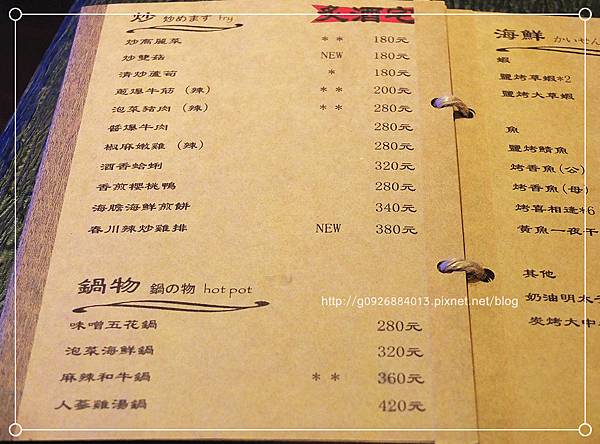 炒 炒めます fry
炙酒宅
炒高麗菜 ** 180元
炒雙菇 NEW 180元
清炒蘆筍 * 180元
蔥爆牛筋 (辣) ** 200元
泡菜豬肉 (辣) ** 280元
醬爆牛肉 280元
椒麻嫩雞 (辣) 280元
酒香蛤蜊 320元
香煎櫻桃鴨 280元
海膽海鮮煎餅 340元
春川辣炒雞排 NEW 380元
鍋物 鍋の物 hot pot
味噌五花鍋 280元
泡菜海鮮鍋 320元
麻辣和牛鍋 ** 360元
人蔘雞湯鍋 420元
海鮮 かいせん
蝦
鹽烤草蝦*2
鹽烤大草蝦
魚
鹽烤鯖魚
烤香魚(公)
烤香魚(母)
烤喜相逢*6
黃魚一夜干
其他
奶油明太子
炭烤大中
http://g0926884013.pixnet.net/blog